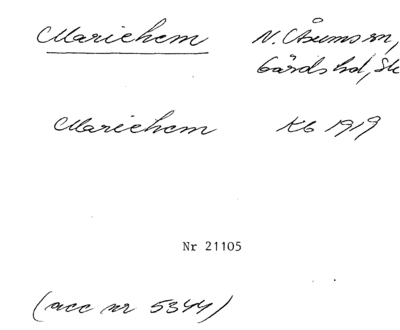 Mariehem N. Åsums sn,
Gärds hd, Sk
Mariehem Kb 1919
Nr 21105
(acc nr 5344)